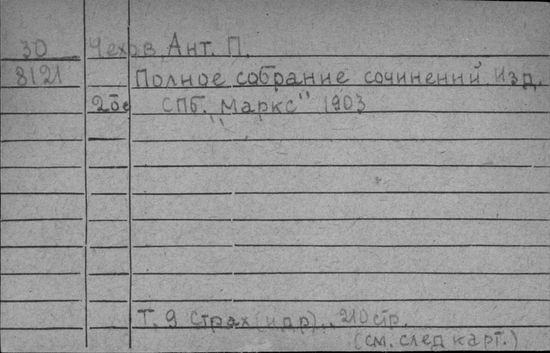 30 Чехов Ант. П.
8121 Полное собрание сочинений изд.
2ое СПб. "Маркс" 1903
Т. 9 Страх (и др)., 210 стр.
(см. след карт.)